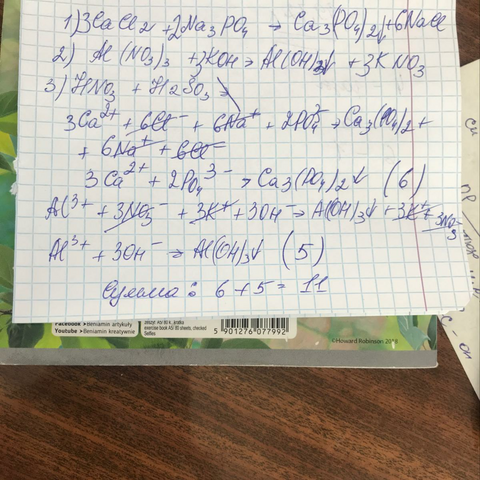 1) 3CaCl2 + 2Na3PO4 → Ca3(PO4)2↓ + 6NaCl
2) Al(NO3)3 + 3KOH → Al(OH)3↓ + 3KNO3
3) HNO3 + H2SO3 →
3Ca2+ + 6Cl- + 6Na+ + 2PO43- → Ca3(PO4)2 +
+ 6Na+ + 6Cl-
3Ca2+ + 2PO43- → Ca3(PO4)2↓ (6)
Al3+ + 3NO3- + 3K+ + 3OH- → Al(OH)3↓ + 3K+ + 3NO3-
Al3+ + 3OH- → Al(OH)3↓ (5)
Сумма: 6 + 5 = 11
Facebook > Beniamin artykuły
Youtube > Beniamin kreatywnie
zeszyt A5/ 80 k., kratka
exercise book A5/ 80 sheets, checked
5 901276 077992
©Howard Robinson 2018